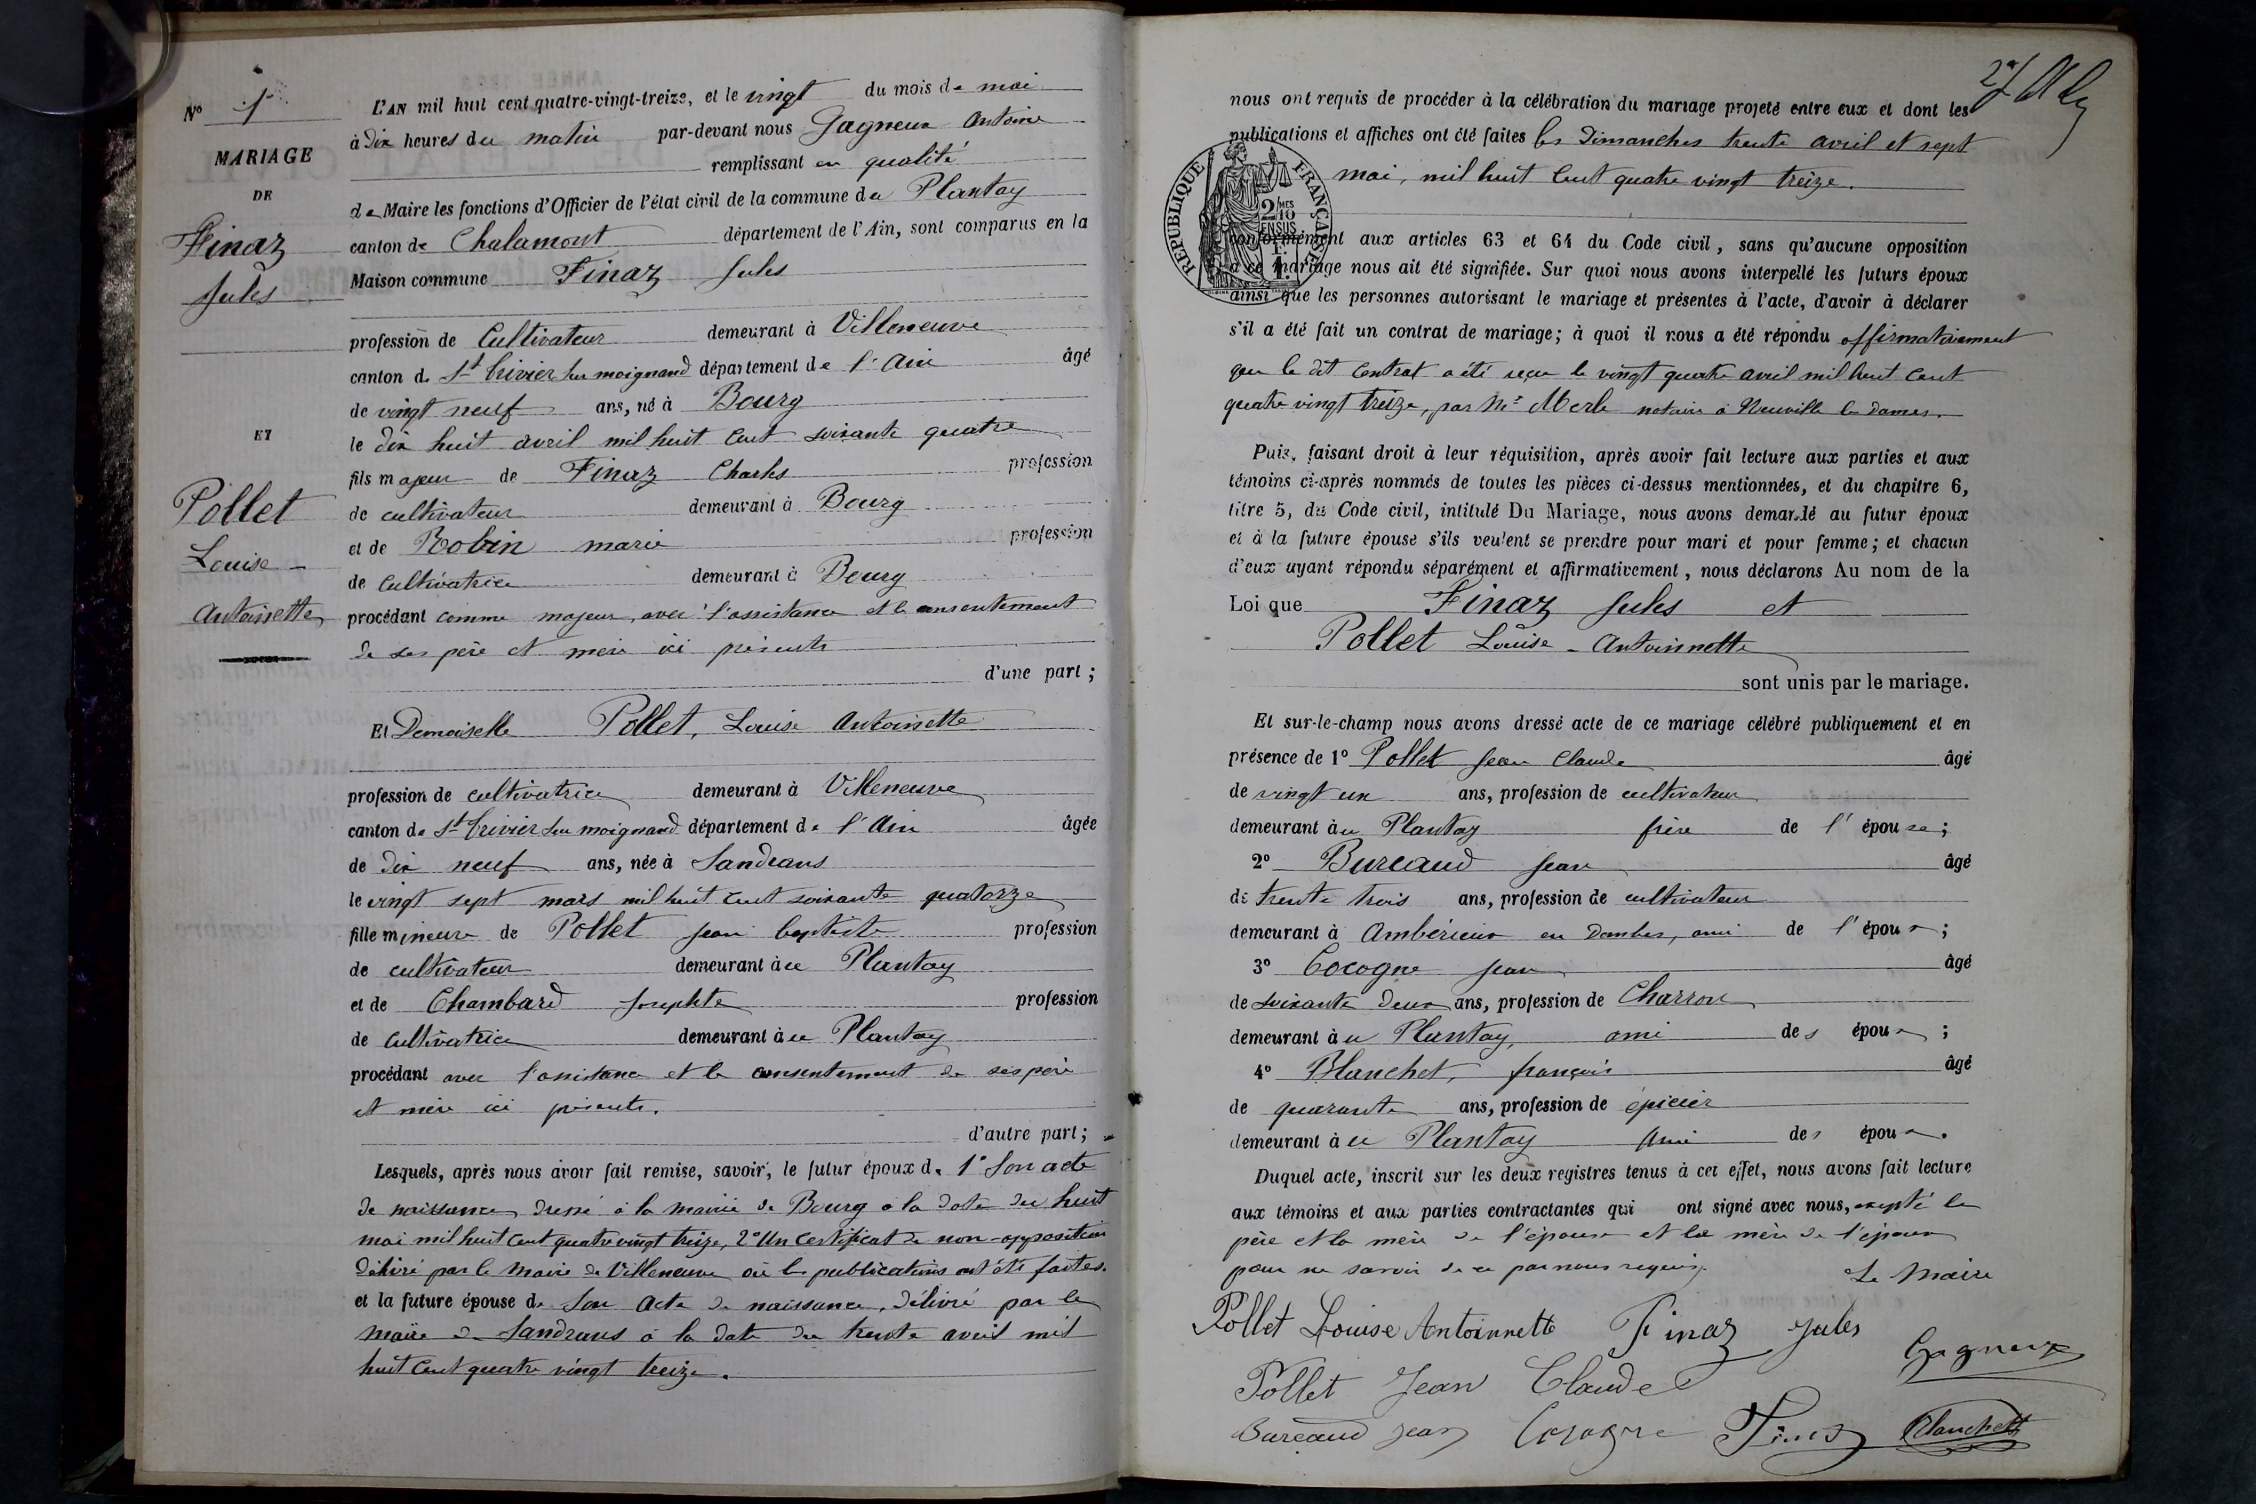 N° 1
MARIAGE
DE
Finaz
Jules
ET
Pollet
Louise –
Antoinette
L'AN mil huit cent quatre-vingt-treize, et le vingt du mois de mai
à dix heures du matin par-devant nous Gagneux Antoine
remplissant en qualité
de Maire les fonctions d'Officier de l'état civil de la commune du Plantay
canton de Chalamont département de l'Ain, sont comparus en la
Maison commune Finaz Jules
profession de Cultivateur demeurant à Villeneuve
canton de St Trivier sur moignand département de l'Ain âgé
de vingt neuf ans, né à Bourg
le dix huit avril mil huit cent soixante quatre
fils majeur de Finaz Charles profession
de cultivateur demeurant à Bourg
et de Robin marie profession
de cultivatrice demeurant à Bourg
procédant comme majeur, avec l'assistance et le consentement
de ses père et mère ici présents
d'une part ;
Et Demoiselle Pollet, Louise Antoinette
profession de cultivatrice demeurant à Villeneuve
canton de St Trivier sur moignand département de l'Ain âgée
de dix neuf ans, née à Sandrans
le vingt sept mars mil huit cent soixante quatorze
fille mineure de Pollet Jean baptiste profession
de cultivateur demeurant au Plantay
et de Chambard Josephte profession
de cultivatrice demeurant au Plantay
procédant avec l'assistance et le consentement de ses père
et mère ici présents.
d'autre part ;
Lesquels, après nous avoir fait remise, savoir, le futur époux de 1° Son acte
de naissance, dressé à la mairie de Bourg à la date du huit
mai mil huit cent quatre vingt treize, 2° Un certificat de non-opposition
délivré par le Maire de Villeneuve où les publications ont été faites.
et la future épouse de Son acte de naissance, délivré par le
Maire de Sandrans à la date du trente avril mil
huit cent quatre vingt treize.
27
nous ont requis de procéder à la célébration du mariage projeté entre eux et dont les
publications et affiches ont été faites les Dimanches trente avril et sept
mai, mil huit cent quatre vingt treize.
RÉPUBLIQUE FRANÇAISE
2/10 MES
EN SUS
conformément aux articles 63 et 64 du Code civil, sans qu'aucune opposition
à ce mariage nous ait été signifiée. Sur quoi nous avons interpellé les futurs époux
ainsi que les personnes autorisant le mariage et présentes à l'acte, d'avoir à déclarer
s'il a été fait un contrat de mariage; à quoi il nous a été répondu affirmativement
que le dit contrat a été reçu le vingt quatre avril mil huit cent
quatre vingt treize, par Me Merle notaire à Neuville les Dames.
Puis, faisant droit à leur réquisition, après avoir fait lecture aux parties et aux
témoins ci-après nommés de toutes les pièces ci-dessus mentionnées, et du chapitre 6,
titre 5, du Code civil, intitulé Du Mariage, nous avons demandé au futur époux
et à la future épouse s'ils veulent se prendre pour mari et pour femme; et chacun
d'eux ayant répondu séparément et affirmativement, nous déclarons Au nom de la
Loi que Finaz Jules et
Pollet Louise – Antoinnette
sont unis par le mariage.
Et sur-le-champ nous avons dressé acte de ce mariage célébré publiquement et en
présence de 1° Pollet Jean Claude âgé
de vingt un ans, profession de cultivateur
demeurant au Plantay frère de l'épouse;
2° Bureaud Jean âgé
de trente trois ans, profession de cultivateur
demeurant à Ambérieux en Dombes, ami de l'époux;
3° Cocogne Jean âgé
de soixante deux ans, profession de Charron
demeurant au Plantay, ami des époux;
4° Blanchet, françois âgé
de quarante ans, profession de épicier
demeurant au Plantay Ami des époux.
Duquel acte, inscrit sur les deux registres tenus à cet effet, nous avons fait lecture
aux témoins et aux parties contractantes qui ont signé avec nous, excepté le
père et la mère de l'épouse et la mère de l'époux
pour ne savoir de ce par nous requis.
Le Maire
Pollet Louise Antoinnette Finaz Jules Gagneux
Pollet Jean Claude
Bureaud Jean Cocogne Finaz Blanchet